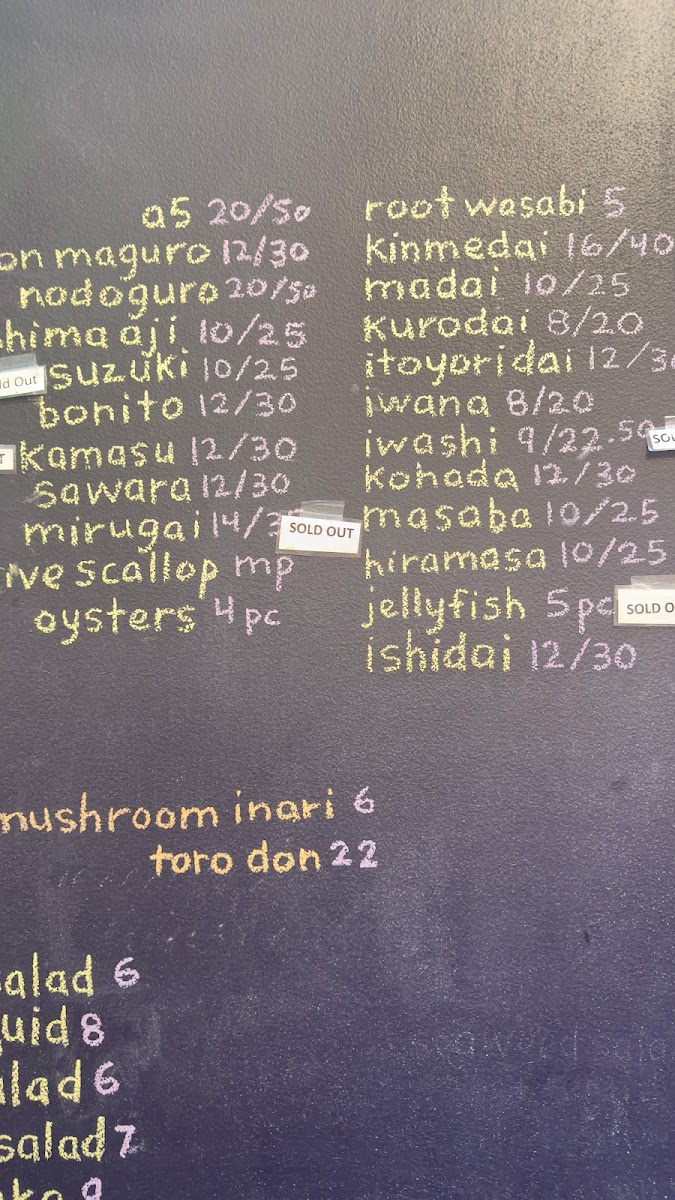 a5 20/50
on maguro 12/30
nodoguro 20/50
hima aji 10/25
ld Out suzuki 10/25
bonito 12/30
T kamasu 12/30
sawara 12/30
mirugai 14/3 SOLD OUT
ive scallop mp
oysters 4 pc
root wasabi 5
kinmedai 16/40
madai 10/25
kurodai 8/20
itoyori dai 12/30
iwana 8/20
iwashi 9/22.50 SOL
kohada 12/30
masaba 10/25
hiramasa 10/25
jellyfish 5pc SOLD O
ishidai 12/30
mushroom inari 6
toro don 22
alad 6
uid 8
lad 6
salad 7
ko 9